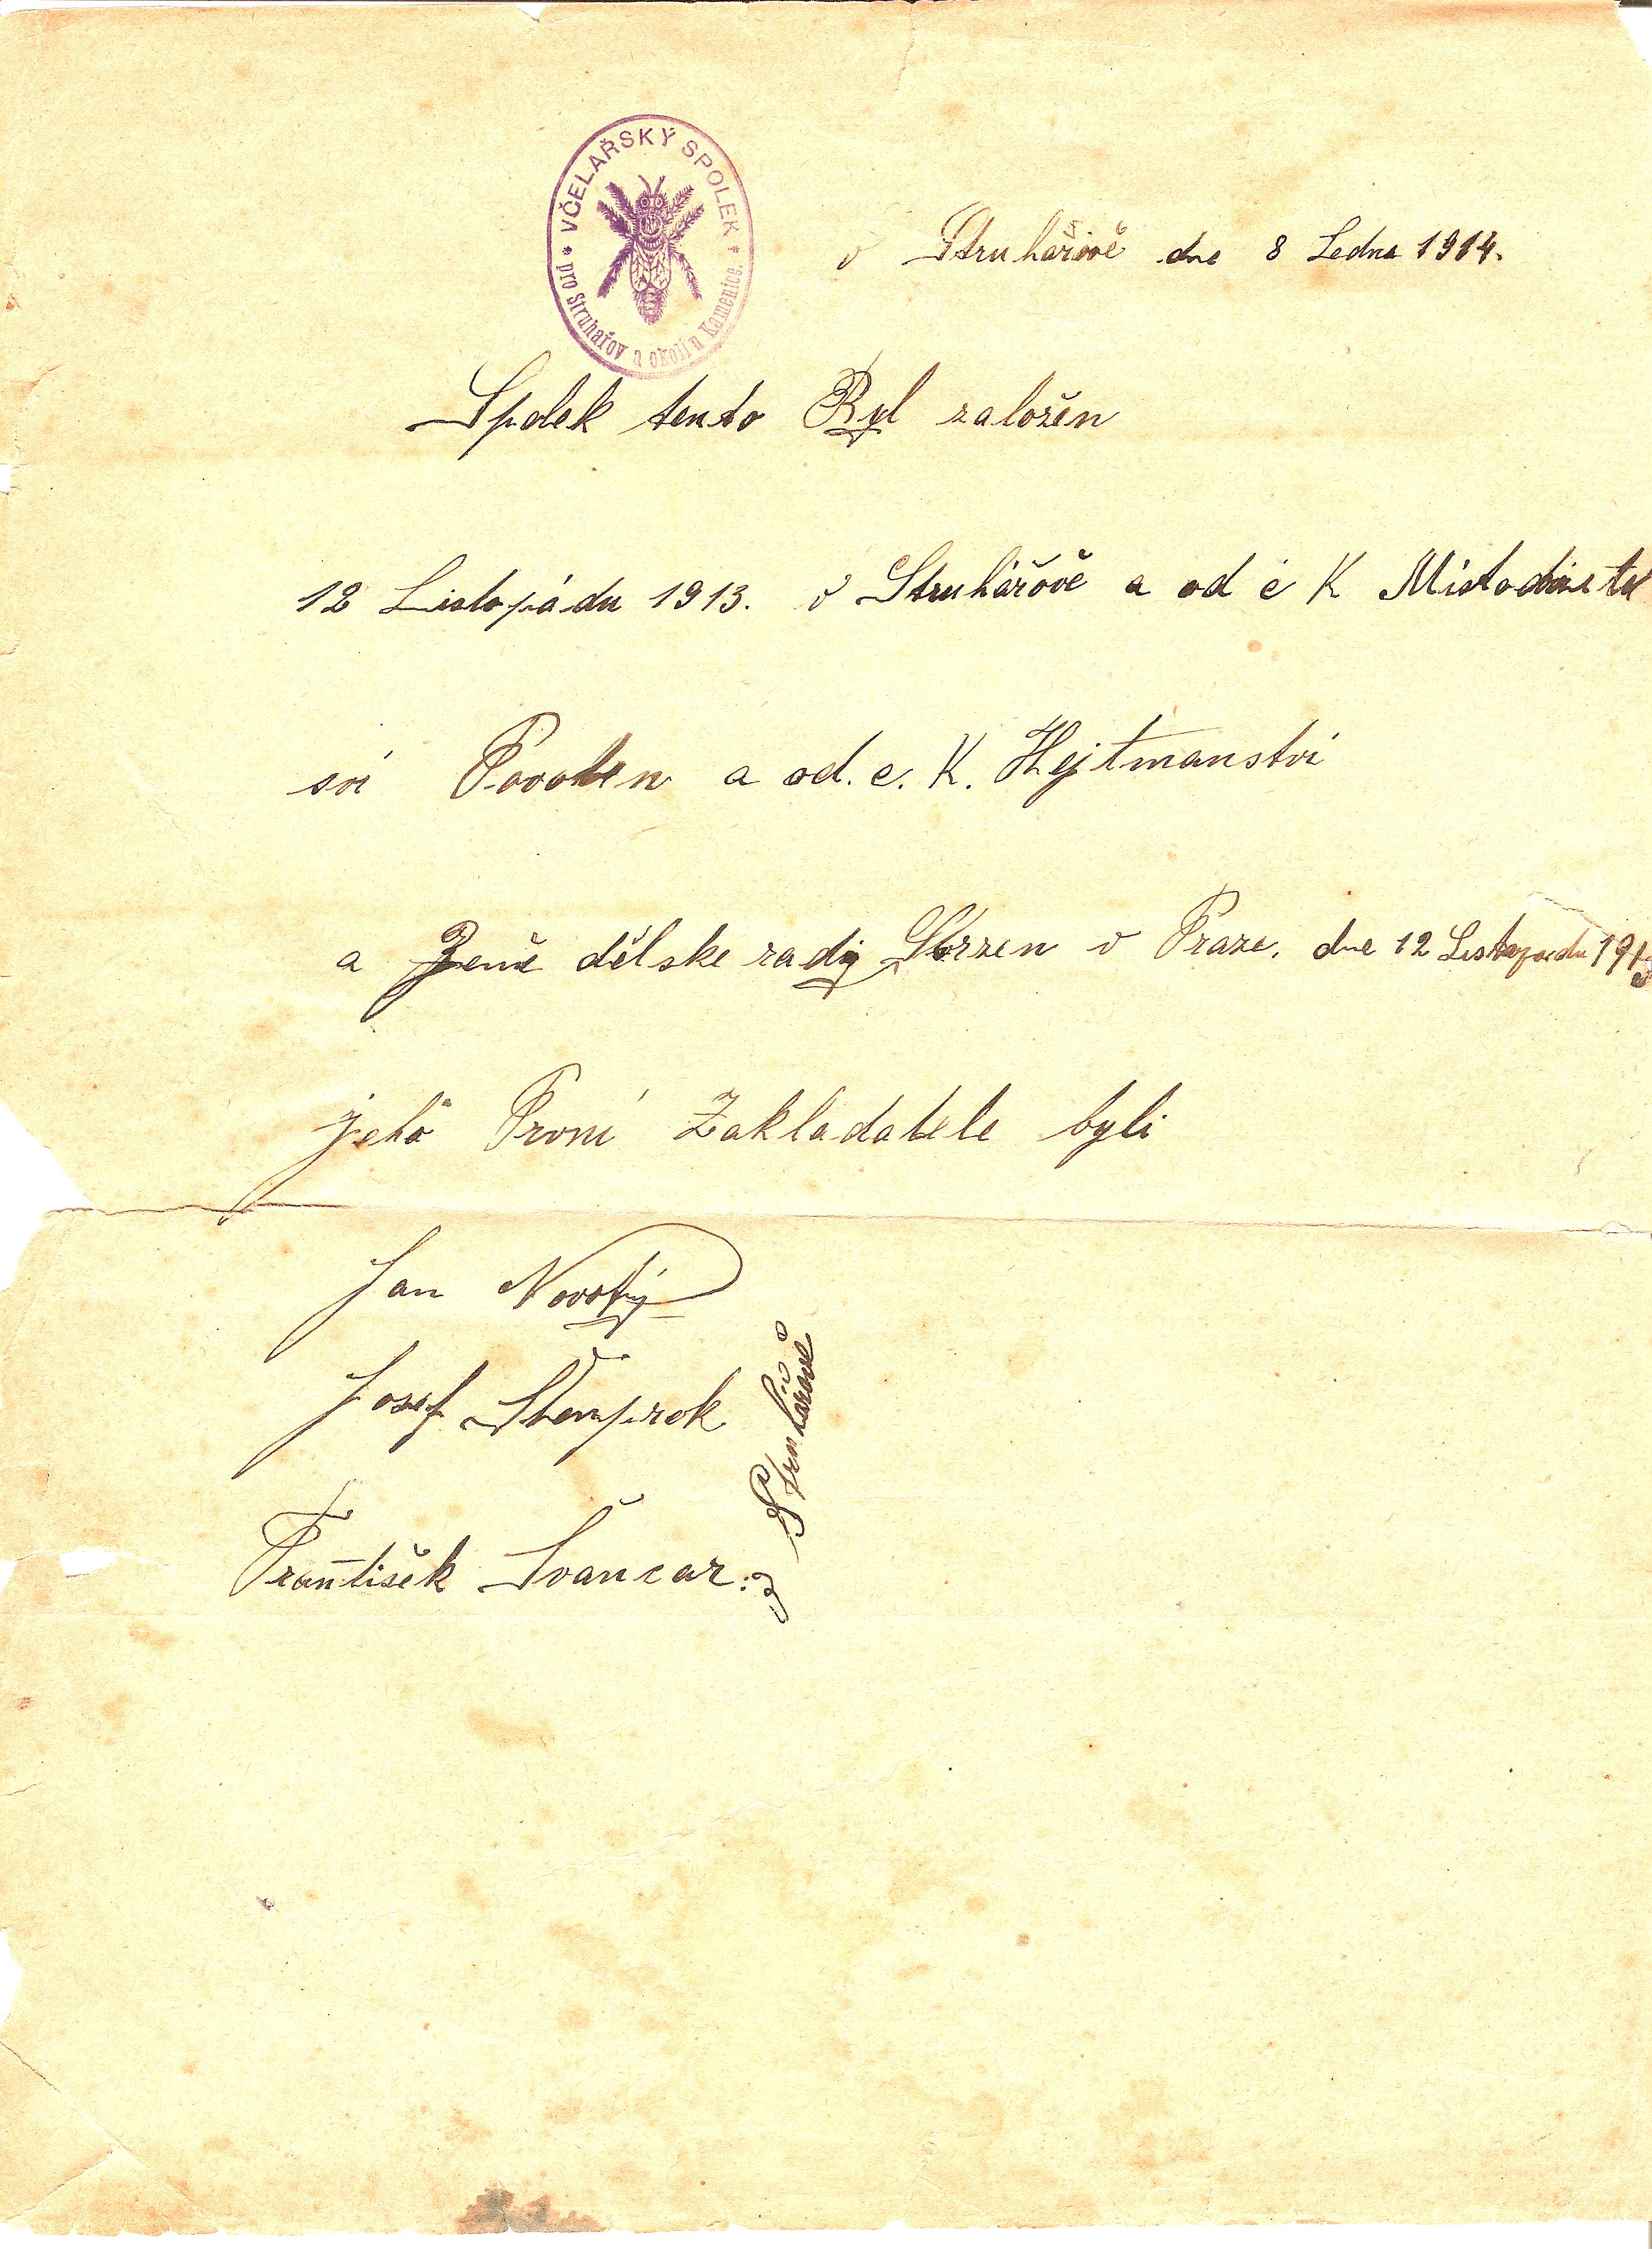 VČELAŘSKÝ SPOLEK
pro Struhařov a okolí u Kamenice.
v Struhařově dne 8 Ledna 1914.
Spolek tento Byl založen
12 Listopádu 1913. v Struhářově a od c K Místodržitel
sví Povolen a od. c. K. Hejtmanství
a Země dělske rady v Praze. dne 12 Listopadu 1913
jeho První Zakladatele byli
Jan Novotný
Josef Štemprok
František Švancar
z Struhařově